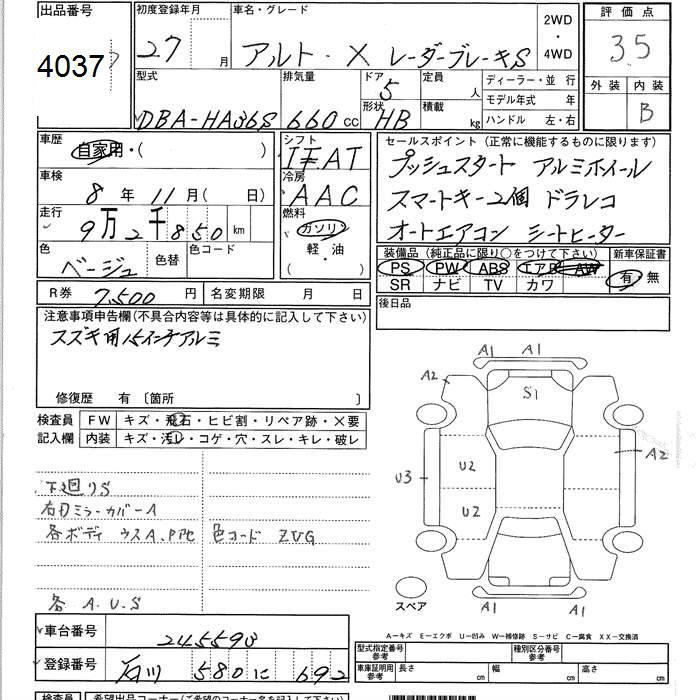 出品番号 初度登録年月 車名・グレード 2WD・4WD 評価点
4037 27 月 アルト・X レーダーブレーキS 3.5
型式 排気量 ドア 5 定員 人 ディーラー・並行 外装 内装
モデル年式 年 B
DBA-HA36S 660cc 形状 HB 積載 kg ハンドル 左・右
車歴 自家用・( ) シフト セールスポイント (正常に機能するものに限ります)
プッシュスタート アルミホイール
車検 8年 11月( 日) 冷房 AAC スマートキー2個 ドラレコ
走行 9万2千850km 燃料 ガソリン オートエアコン シートヒーター
軽・油
( )
色 ベージュ 色替 色コード 装備品 (純正品に限り○をつけて下さい) 新車保証書
PS PW ABS エアB AW 有・無
SR ナビ TV カワ
R券 7,500円 名変期限 月 日 後日品
注意事項申告欄(不具合内容等は具体的に記入して下さい)
スズキ用15インチアルミ
修復歴 有 〔箇所 〕
検査員 FW キズ・飛石・ヒビ割・リペア跡・X要
記入欄 内装 キズ・汚レ・コゲ・穴・スレ・キレ・破レ
A1 A1
A2 S1
A2
U2
U3
U2
A1 A1
スペア
下廻りS
右ドミラーカバーA
各ボディ ウスA.Pアセ 色コード ZVG
各 A.U.S
A-キズ E-エクボ U-凹み W-補修跡 S-サビ C-腐食 XX-交換済
車台番号 245590
型式指定番号 参考 種別区分番号 参考
登録番号 石川 580 に 692
車庫証明用 参考 長さ cm 幅 cm 高さ cm
検査員 希望出品コーナー(ご希望のコーナー名を記入して下さい)